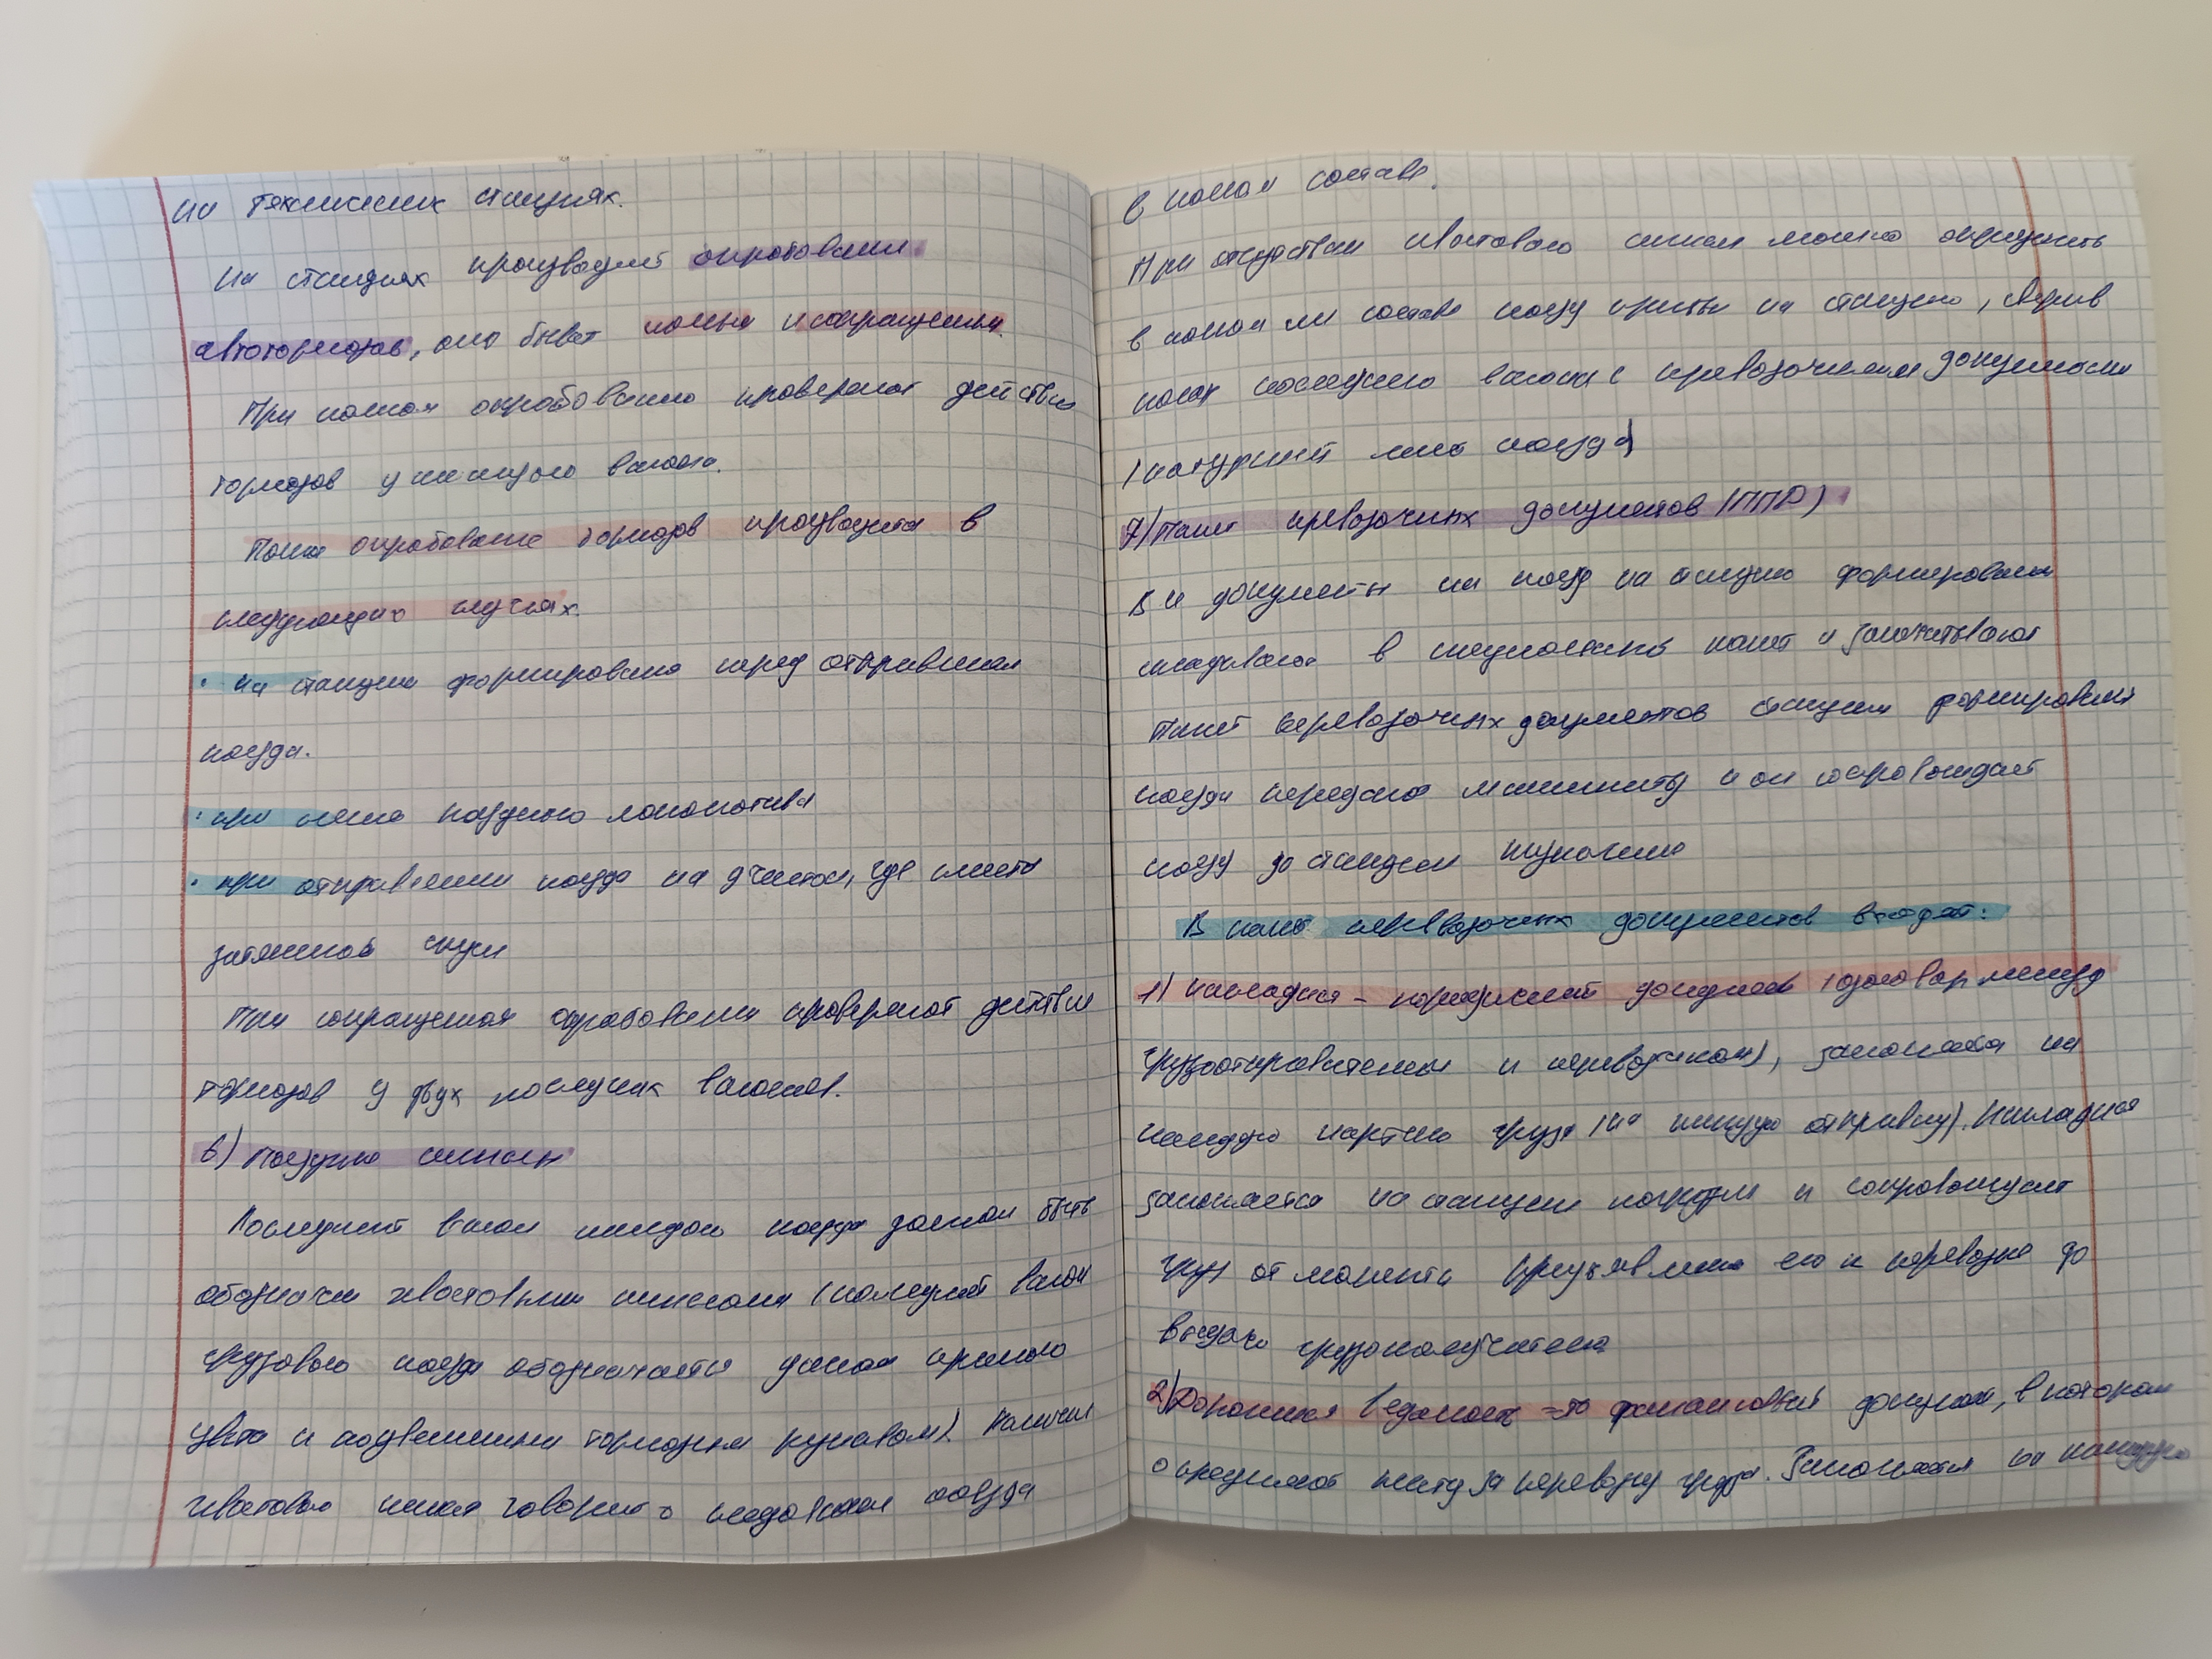 на технических станциях.
На станциях производят опробование
автотормозов, оно бывает полным и сокращенным.
При полном опробовании проверяют действие
тормозов у каждого вагона.
Полное опробование тормозов производится в
следующих случаях.
· на станции формирования перед отправлением
поезда.
· при смене поездного локомотива
· при отправлении поезда на участок, где имеются
затяжной спуск
При сокращенном опробовании проверяют действие
тормозов у двух последних вагонов.
в) Поездные сигналы
Последний вагон каждого поезда должен быть
обозначен хвостовыми сигналами (последний вагон
грузового поезда обозначается диском красного
цвета и подвешенным тормозным рукавом). Наличие
хвостового сигнала говорит о следовании поезда
в полном составе.
При отсутствии хвостового сигнала можно определить
в полном ли составе поезд прибыл на станцию, сверив
номер последнего вагона с перевозочными документами
(натурный лист поезда)
7) Пакет перевозочных документов (ППД)
Все документы на поезд на станции формирования
складывают в специальный пакет и запечатывают
Пакет перевозочных документов станции формирования
поезда передают машинисту и он сопровождает
поезд до станции назначения
В пакет перевозочных документов входят:
1) накладная - юридический документ (договор между
грузоотправителем и перевозчиком), заполняется на
каждую партию груза (на каждую отправку). Накладная
заполняется на станции погрузки и сопровождает
груз от момента предъявления его к перевозке до
выдачи грузополучателю
2) Дорожная ведомость - это финансовый документ, в котором
определяют плату за перевозку груза. Заполняется на каждую